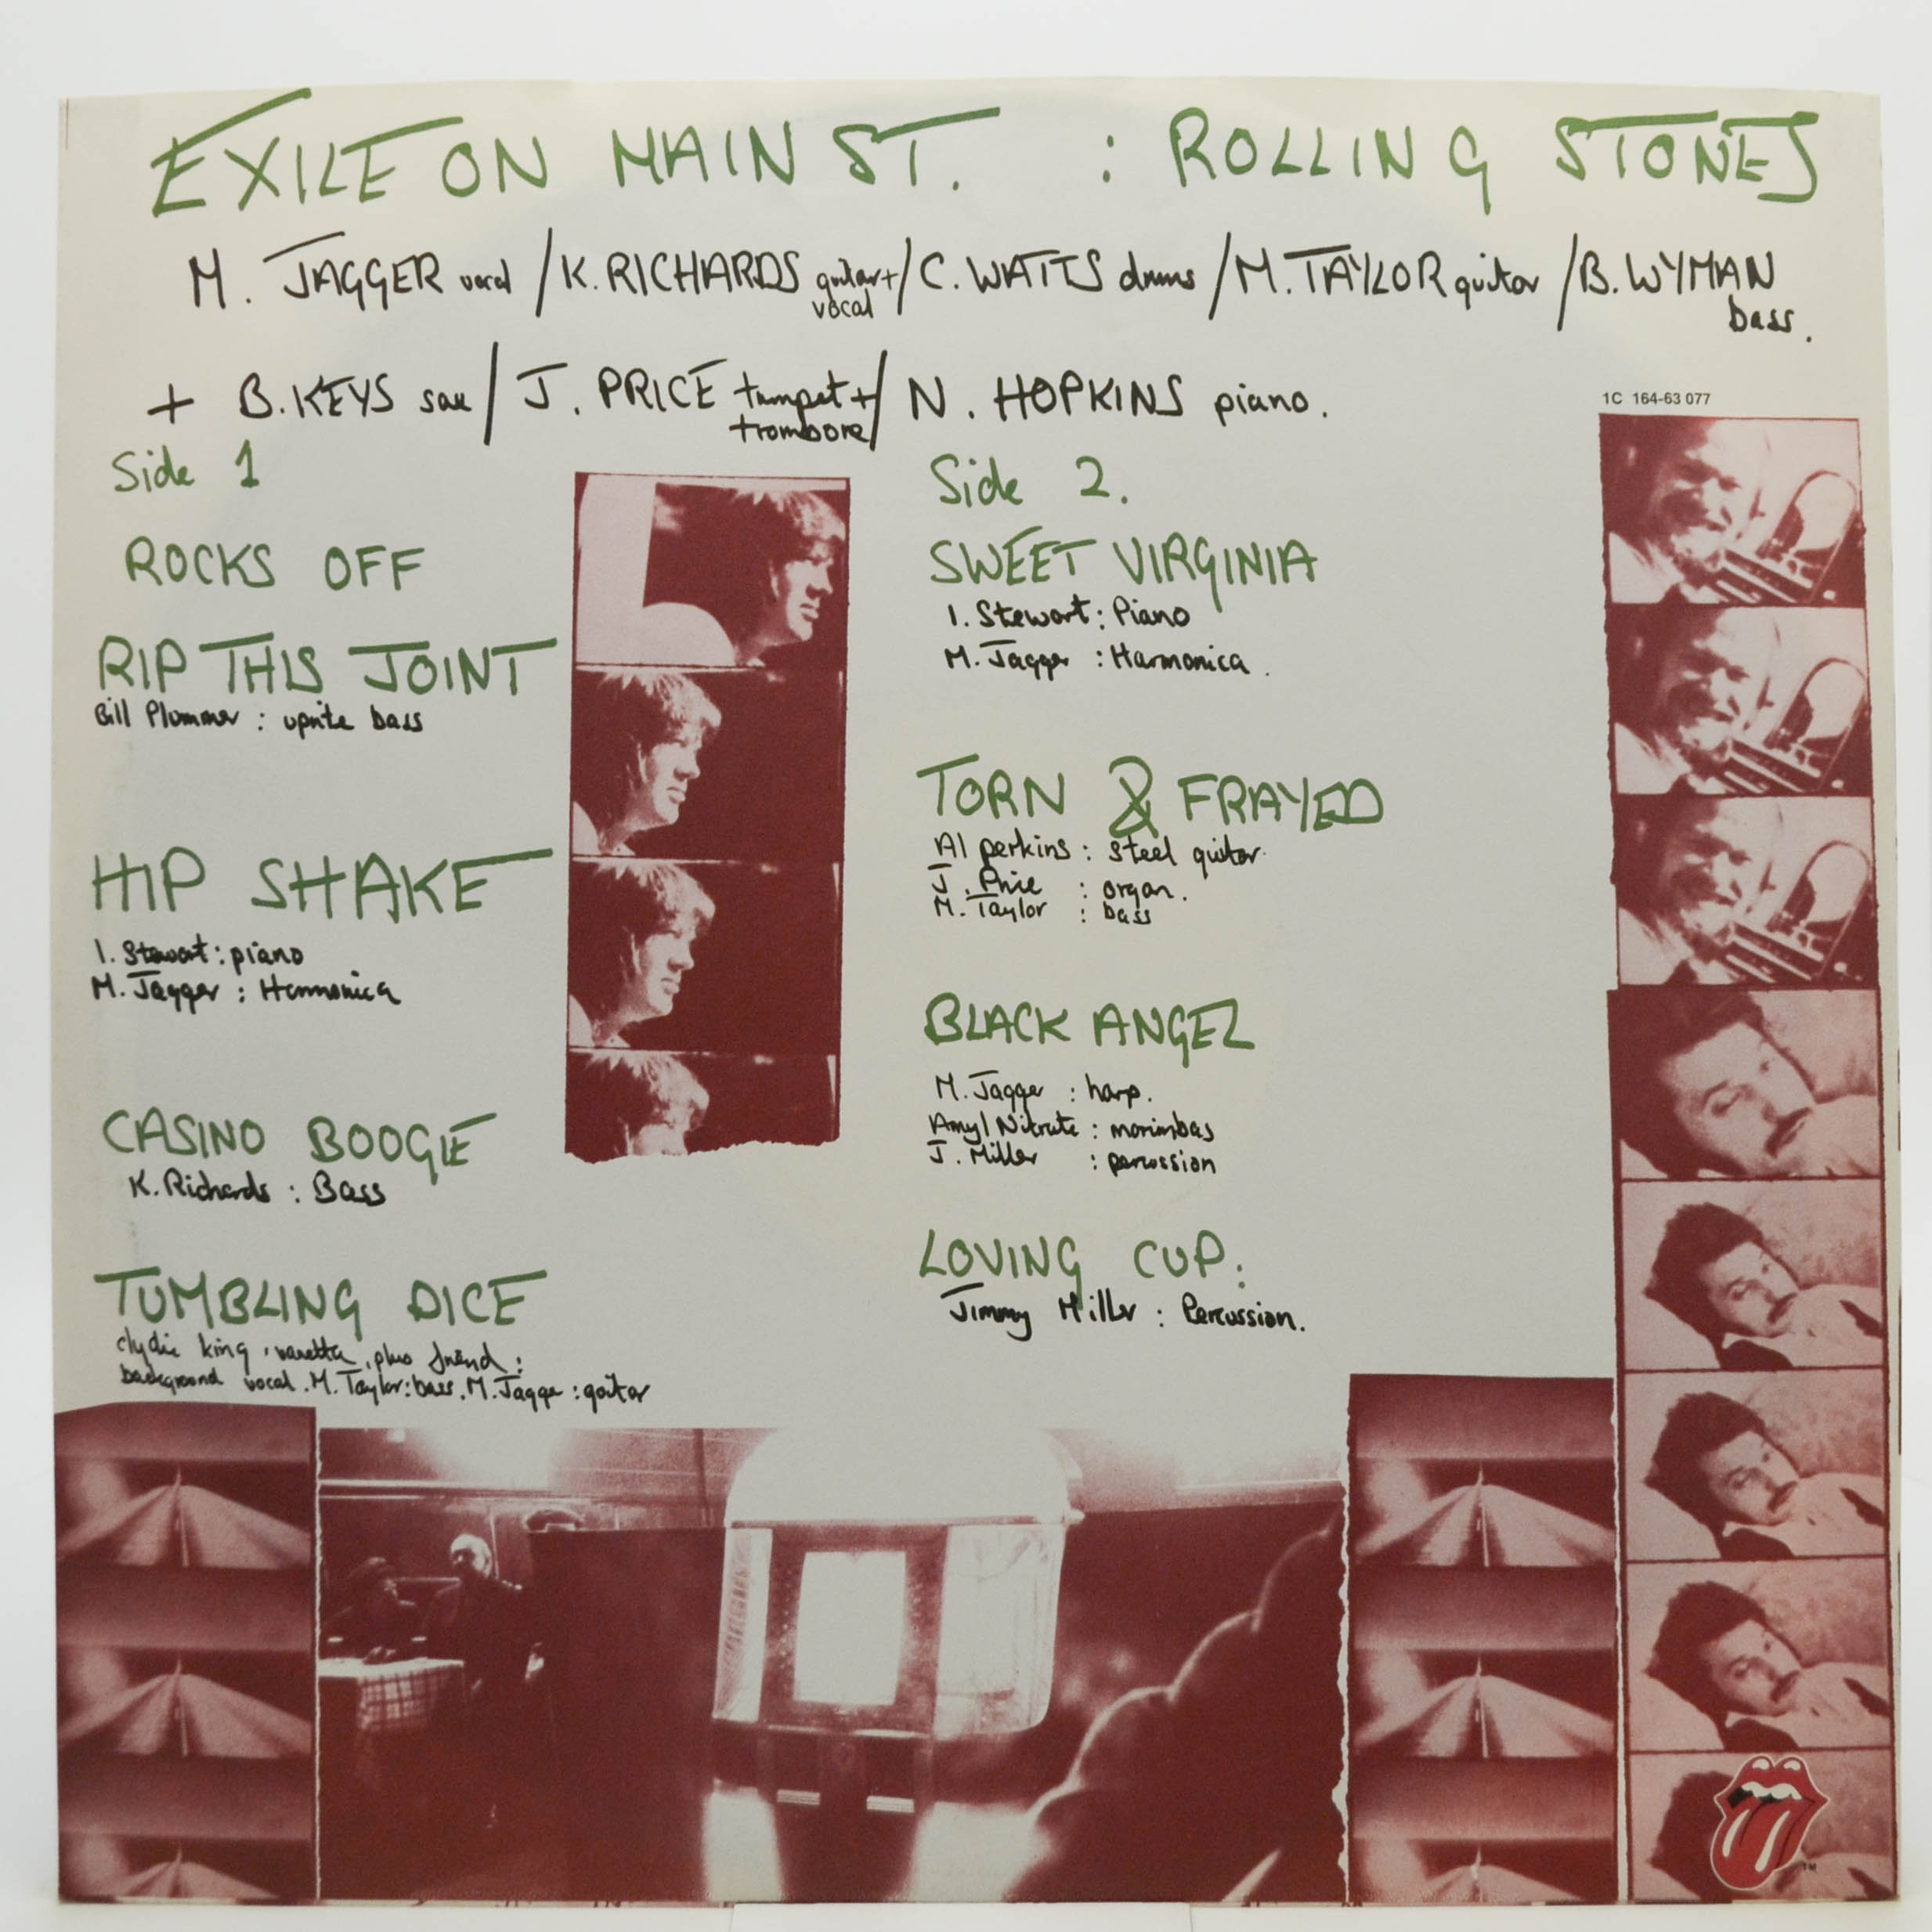 EXILE ON MAIN ST. : ROLLING STONES
M. JAGGER vocal / K. RICHARDS guitar + vocal / C. WATTS drums / M. TAYLOR guitar / B. WYMAN bass.
+ B. KEYS sax / J. PRICE trumpet + trombone / N. HOPKINS piano.
1C 164-63 077
Side 1
ROCKS OFF
RIP THIS JOINT
Bill Plummer : uprite bass
HIP SHAKE
I. Stewart : piano
M. Jagger : Harmonica
CASINO BOOGIE
K. Richards : Bass
TUMBLING DICE
clydie king, vanetta, plus friend :
background vocal. M. Taylor : bass. M. Jagger : guitar
Side 2.
SWEET VIRGINIA
I. Stewart : Piano
M. Jagger : Harmonica.
TORN & FRAYED
Al perkins : steel guitar.
J. Price : organ.
M. Taylor : bass
BLACK ANGEL
M. Jagger : harp.
Amyl Nitrate : marimbas
J. Miller : percussion
LOVING CUP :
Jimmy Miller : Percussion.
TM